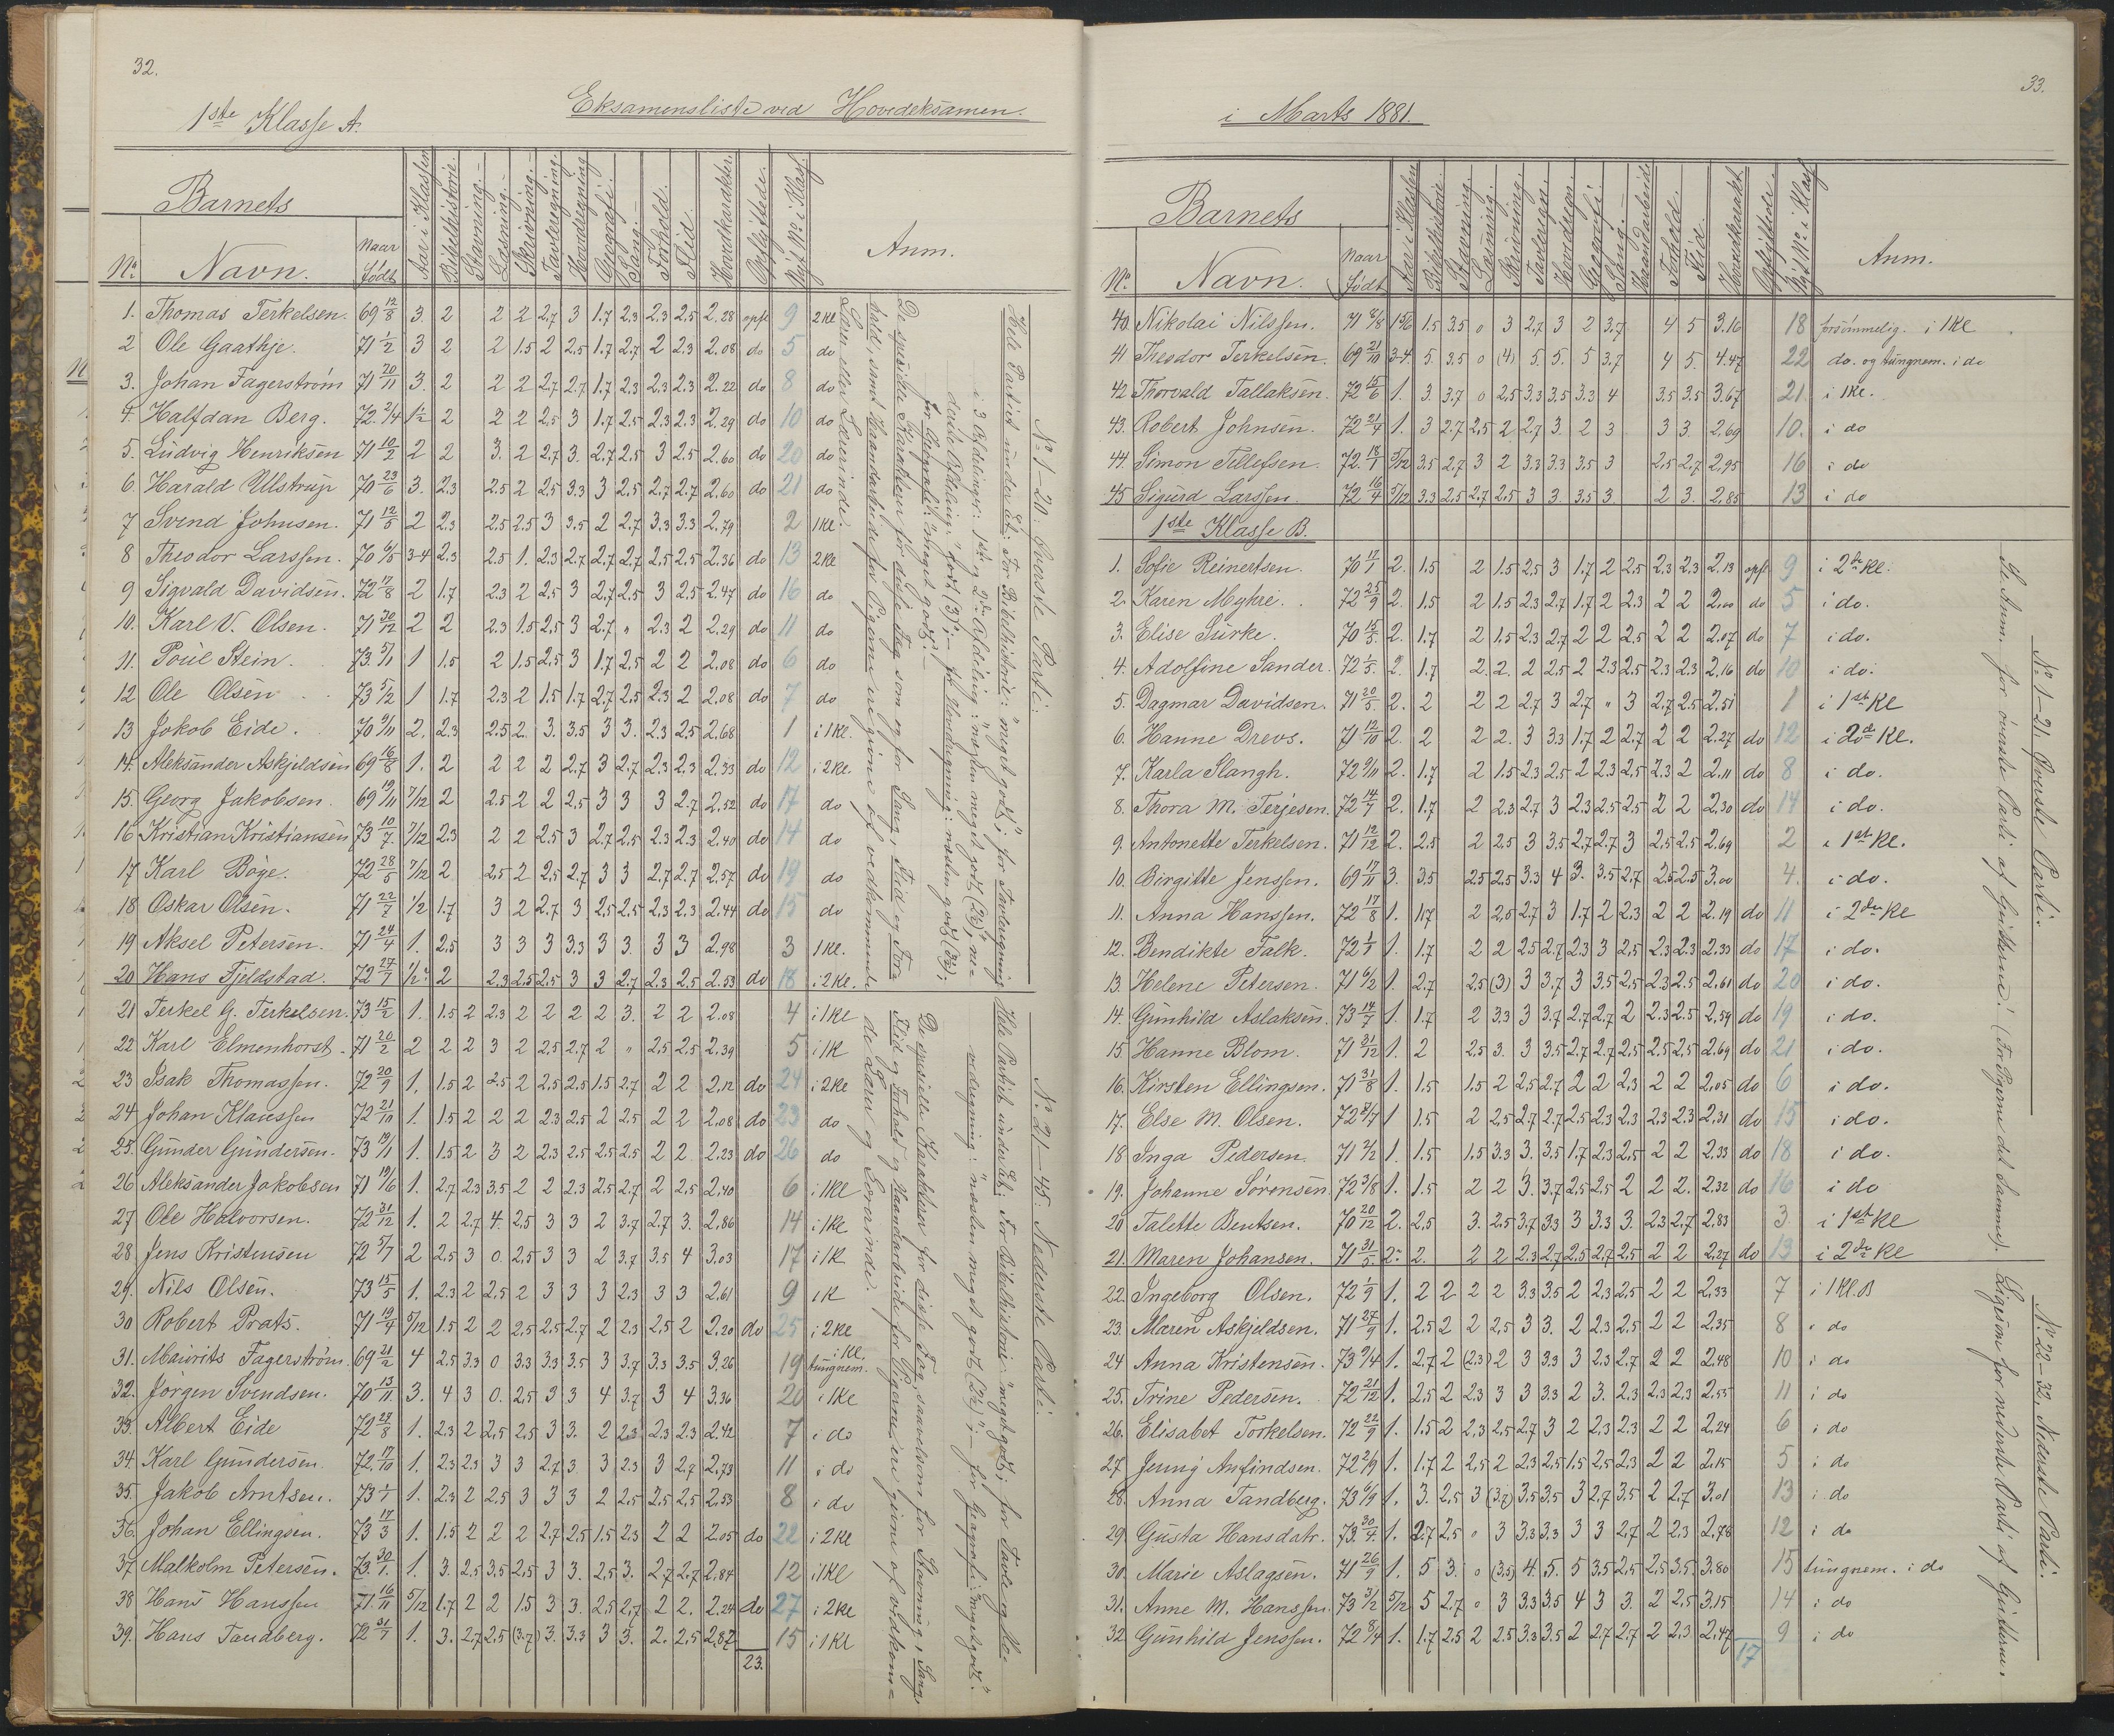 32.
1ste Klasse A.
Eksamensliste ved Hovedeksamen.
Barnets
Aar i Klassen
Bibelhistorie.
Stavning.
Læsning.
Skrivning.
Tavleregning.
Hovedregning
Geografi.
Sang.
Forhold.
Flid.
Hovedkarakter.
Opflyttede.
Nyt No. i Klas.
Anm.
No. Navn. Naar Født
1. Thomas Terkelsen. 69 12/8 3. 2 2 2 2.7 3 1.7 2.3 2.3 2.5 2.28 opfl 9 2 Kl
2 Ole Gaathje. 71 1/2 3 2 2 1.5 2 2.5 1.7 2.7 2 2.3 2.08 do 5 do
3. Johan Fagerström 71 20/11 3. 2 2 2 2.7 2.7 1.7 2.3 2.3 2.3 2.22 do 8 do
4. Halfdan Berg. 72. 2/4 1½ 2 2 2 2.5 3 1.7 2.5 2.3 2.3 2.29 do 10 do
5. Ludvig Henriksen 71 10/2 2 2 3. 2 2.7 3. 2.7 2.5 3 2.5 2.60 do 20 do
6. Harald Ullstrup 70 23/6 3. 2.3 2.5 2 2.5 3.3 3 2.5 2.7 2.7 2.60 do 21 do
7 Svend Johnsen. 71 12/5 2 2.3 2.5 2.5 3 3.5 2 2.7 3.3 3.3 2.79 2 1 Kl
8 Theodor Larssen. 70 6/5 3-4 2.3 2.5 1. 2.3 2.7 2.7 2.7 2.5 2.5 2.36 do 13 2 Kl
9 Sigvald Davidsen. 72 17/8 2 1.7 2.3 2 2.5 3 2.7 2.5 3 2.5 2.47 do 16 do
10. Karl V. Olsen. 71 30/12 2 2 2.3 1.5 2.5 3 2.7 " 2.3 2 2.29 do 11 do
11. Poul Stein. 73. 5/1 1 1.5 2 1.5 2.5 3 1.7 2.5 2 2 2.08 do 6 do
12 Ole Olsen 73 5/2 1 1.7 2.3 2 1.5 1.7 2.7 2.5 2.3 2 2.08 do 7 do
13 Jokob Eide. 70 9/11 2. 2.3 2.5 2. 3. 3.5 3 3. 2.3 2.5 2.68 1 i 1 Kl.
14. Aleksander Askjeldsen 69 16/8 1. 2 2 2 2 2.7 3 2.7 2.3 2.3 2.33 do 12 i 2 Kl.
15. Georg Jakobsen. 69 19/11 7/12 2 2.5 2 2 2.5 3 3 3 2.7 2.52 do 17 do
16 Kristian Kristiansen 73 10/7. 7/12 2.3 2 2 2.5 3 2.7 2.5 2.3 2.3 2.40 do 14 do
17 Karl Böge. 72 28/5 7/12 2 2.5 2 2.5 2.7 3 3 2.7 2.7 2.57 do 19 do
18 Oskar Olsen. 71 22/7 1/2 1.7 3 2 2.7 3 2.5 2.5 2.3 2.3 2.44 do 15 do
19 Aksel Petersen. 71 24/4 1. 2.5 3 3 3 3.3 3 3. 3 3 2.98 3 1 Kl.
20 Hans Fjeldstad. 72 27/7 1/2 2 2.3 2.5 2.5 3 3 2.7 2.3 2.5 2.53 do 18 i 2 Kl.
21 Terkel G. Terkelsen. 73 15/2 1. 1.5 2 2.3 2 2 2 2 3. 2 2 2.08 4 i 1 Kl
22 Karl Elmenhorst. 71 20/2 2 2 2 3 2 2.5 2.7 2 " 2.5 2.5 2.39 5 i 1 K
23 Isak Thomassen. 72 20/9 1. 1.5 2 2.5 2 2.5 2.5 1.5 2.7 2 2 2.12 do 24 i 2 Kl
24 Johan Klaussen 72 21/10 1. 1.5 2 2 2 2.3 2.5 2 2.5 2 2 2.08 do 23 do
25. Gunder Gundersen. 73 19/1 1. 1.5 2 3 2 2.3 2.5 2.5 2.5 2 2 2.23 do 26 do
26 Aleksander Jakobsen 71 19/6 1. 2.7 2.3 3.5 2 2 2.3 2.5 2.7 2 2.5 2.40 6 i 1 Kl
27 Ole Halvorsen. 72 31/12 1. 2 2.7 4. 2.5 3 3 2 3.7 2.7 3. 2.86 14 i 1 Kl
28 Jens Kristensen 72 5/7 2 2.5 3 0. 2.5 3 3 2 3.7 3.5 4 3.03 17 i 1 K
29. Nils Olsen. 73 15/5 1. 2.3 2 2.5 2 3 3 3 2.3 3 3 2.61 9 i K
30 Robert Prats. 71 19/4 5/12 1.5 2 2 2.5 2.5 2.7 2 2.3 2.5 2 2.20 do 25 i 2 Kl
31. Mauvrits Fagerström. 69 21/2 4 2.5 3.3 0 3.3 3.3 3.5 3 3.7 3.3 3.5 3.26 19 tungnem. i Kl.
32. Jörgen Svendsen. 70 13/11 3. 4 3 0. 2.5 3 3 4 3.7 3 4 3.36 20 i 1 Kl
33. Albert Eide 72 27/8 1. 2.3 2 2.5 2.5 3 3. 2 2.3 2.3 2.3 2.42 7 i do
34. Karl Gundersen 72. 17/10 1. 2.3 2.3 3 3 2.7 3. 3 2.3 3 2.7 2.73 11 i do
35. Jakob Arntsen. 73 1/1 1. 2.3 2 2.5 3 3 3 2 2.5 2.5 2.5 2.53 8 i do
36. Johan Ellingsen. 73 17/3 1. 1.5 2 2 2 2.7 2.5 1.5 2.3 2 2 2.05 do 22 i 2 Kl
37. Malkolm Petersen. 73. 30/1. 1. 3. 2.5 3.5 2.5 3 3. 2.5 3. 2.7 2.7 2.84 12 i 1 Kl
38 Hans Hanssen 71. 16/11 5/12 1.7 2 2 1.5 3 3. 2.5 2.7 2 2. 2.24 do 27 i 2 Kl
39. Hans Tandberg. 72 31/7 1. 3. 2.7 2.5 (3.7) 3. 3.3 3 3. 2. 2.5 2.82 15 i 1 Kl
23.
No. 1-20: Överste Parti:
Hele Partiet under Et: For Bibelhistorie: "meget godt"; for Tavleregning
i 3 Afdelinger: 1ste og 2den Afdeling: "næsten meget godt" (2½); ne-
derste Afdeling: "godt" (3); – for Hovedregning: næsten godt (3½);
for Geografi: "meget godt". –
De specielle Karakterer for disse Fag som og for Sang, Flid og For-
hold samt Haandarbeide for Pigerne ere givne af vedkommende
Lærer eller Lærerinde.
No. 21-45: Nederste Parti:
Hele Partiet under Et: For Bibelhistorie: "meget godt"; for Tavle- og Ho-
vedregning: "næsten meget godt" (2½); – for Geografi: "meget godt".
De specielle Karakterer for disse Fag, saavelsom for Stavning, Sang,
Flid og Forhold og Haandarbeide for Pigerne, ere givne af vedkom-
de Lærer og Lærerinde.
33.
i Marts 1881.
Barnets
Aar i Klassen
Bibelhistorie.
Stavning.
Læsning.
Skrivning.
Tavleregn.
Hovedregn.
Geografi.
Sang.
Haandarbeide
Forhold.
Flid.
Hovedkarakt.
Opflyttede.
Nyt No. i Klas
Anm.
No. Navn. Naar født
40. Nikolai Nilssen. 71 8/8 1 5/6 1.5 3.5 0 3 2.7 3 2 3.7 4 5 3.16 18 forsömmelig. i 1 Kl
41 Theodor Terkelsen. 69 21/10 3-4 5. 3.5 0 (4) 5. 5. 5 3.7 4 5. 4.47 22 do. og tungnem. i do
42 Thorvald Tallaksen. 72 15/6 1. 3. 3.7 0 2.5 3.3 3.5 3.3 4 3.5 3.5 3.67 21 i 1 Kl.
43. Robert Johnsen. 72 21/4 1. 3 2.7 2.5 2 2.7 3. 2 3 3 3. 2.69 10. i do
44. Simon Tellefsen. 72. 18/1 5/12 3.5 2.7 3 2 3.3 3.3 3.5 3 2.5 2.7 2.95 16 i do
45 Sigurd Larssen. 72 16/4 5/12 3.3 2.5 2.7 2.5 3 3. 3.5 3 2 3. 2.85 13 i do
1ste Klasse B.
1. Sofie Reinertsen. 70 17/1 2. 1.5 2 1.5 2.5 3 1.7 2 2.5 2.3 2.3 2.13 opfl 9 i 2de Kl.
2. Karen Myhre. 72 25/9 2. 1.5 2 1.5 2.3 2.7 1.7 2 2.3 2 2 2.00 do 5 i do.
3. Elise Surke. 70 15/5. 2. 1.7 2 1.5 2.3 2.7 2 2 2.5 2 2 2.07 do 7 i do.
4. Adolfine Sander. 72 1/5. 2. 1.7 2. 2. 2 2.5 2 2.3 2.5 2.3 2.3 2.16 do 10 i do.
5. Dagmar Davidsen. 71 20/5. 2. 2 2 2 2.7 3 2.7 " 3 2.7 2.5 2.51 1 i 1st Kl
6. Hanne Drevs. 71 12/10 2. 2 2 2. 3 3.3 1.7 2 2.7 2 2 2.27 do 12 i 2de Kl.
7. Karla Slangh. 72 9/11 2. 1.7 2 1.5 2.3 2.5 2 2.3 2.5 2.3 2 2.11 do 8 i do.
8. Thora M. Terjesen. 72 14/7 2. 1.7 2 2.3 2.7 3 2.3 2.5 2.5 2 2 2.30 do 14 i do.
9. Antonette Terkelsen. 71 12/12 2. 2.5 2 2.5 3 3.5 2.7 2.7 3 2.5 2.5 2.69 2 i 1st Kl.
10. Birgitte Jenssen. 69 17/11 3. 3.5 2.5 2.5 3.3 4 3. 3.5 2.7 2.5 2.5 3.00 4. i do.
11. Anna Hanssen. 72 17/8 1. 1.7 2 2.5 2.7 3 1.7 2 2.3 2 2 2.19 do 11 i 2den Kl
12. Bendikte Falk. 72 1/1 1. 1.7 2 2 2.5 2.7 2.3 3 2.5 2.3 2.3 2.33 do 17 i do.
13. Helene Petersen. 71 6/2 1. 2.7 2.5 (3) 3 3.7 3 3.5 2.5 2.3 2.5 2.61 do 20 i do.
14. Gunhild Aslaksen. 73 14/7 1. 1.7 2 3.3 3 3.7 2.7 2.7 2 2.3 2.5 2.59 do 19 i do.
15 Hanne Blom. 71 31/12 1. 2 2.5 3. 3 3.5 2.7 2.7 2.5 2.5 2.5 2.69 do 21 i do.
16. Kirsten Ellingsen. 71 31/8 1. 1.5 1.5 2 2.5 2.7 2 2 2.3 2 2 2.05 do 6 i do.
17. Else M. Olsen. 72 8/7 1 1.5 2 2.5 2.7 2.7 2.5 2.3 2.3 2.3 2.3 2.31 do 15 i do.
18 Inga Pedersen. 71 4/2 1. 1.5 1.5 3.3 3. 3.5 1.7 2.3 2.5 2 2 2.33 do 18 i do.
19. Johanne Sörensen. 72 3/8 1. 1.5 2 2 3. 3.7 2.5 2.5 2 2 2. 2.32 do 16 i do
20 Talette Bentsen. 70 20/12 2. 2.5 3. 2.5 3.7 3.3 3 3.3 3. 2.3 2.7 2.83 3. i 1st Kl
21. Maren Johansen. 71 31/5. 2. 2. 2 2 2.3 2.7 2.5 2.7 2.5 2 2 2.27 do 13 i 2den Kl
22. Ingeborg Olsen. 72 1/9 1. 2 2 2 2 3.3 3.5 2 2.3 2.5 2 2 2.33 7 i 1 Kl. B
23. Maren Askjeldsen. 71 27/9 1. 2.5 2 2 2.5 3 3. 2 2.3 2.5 2 2 2.35 8 i do
24 Anna Kristensen. 73 9/4 1. 2.7 2 (2.3) 2 3 3.3 3 2.3 2.7 2 2 2.48 10 i do
25. Trine Pedersen. 72 21/12 1. 2.5 2 2.3 3 3 3.3 2 3. 2.3 2.3 2.3 2.53 11 i do
26. Elisabet Torkelsen. 72 22/9 1. 1.5 2 2.3 2.5 2.7 3 2 2.3 2.3 2 2 2.24 6 i do
27 Jenny Anfindsen. 72 2/9 1. 1.7 2 2.5 2 2.3 2.5 1.5 2.5 2.3 2 2 2.15 5 i do
28. Anna Tandberg. 73 6/9 1. 3. 2.5 3 (3.7) 3.5 3.5 3 2.7 3.5 2 2.7 3.01 13 i do
29. Gusta Hansdatr. 73. 30/4. 1. 2.7 2.5 0 3 3.3 3.3 3 3 2.7 2 2.3 2.78 12 i do
30. Marie Aslagsen. 71 26/9 1. 5 3. 0 (3.5) 4. 5. 5 3.5 2.5 2.5 3.5 3.80 15 tungnem. i do
31. Anne M. Hanssen. 73 3/12 5/12 5 2.7 0 3 3.3 3.5 4 3 3. 2 2.5 3.15 14 i do
32 Gunhild Jenssen. 72 8/4 1. 1.7 2.5 2 2.5 3.3 3.5 2 2.7 2.7 2 2.3 2.47 9 i do
17
No. 1-21. Överste Parti:
Se Anm. for överste Parti af Gutterne! (For Pigerne det samme).
No. 22-32. Nederste Parti:
Ligesom for nederste Parti af Gutterne.